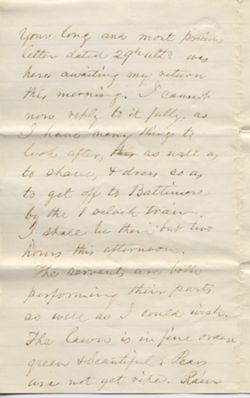 Your long and most precious
letter dated 29th ulto was
here awaiting my return
this morning. I cannot
now reply to it fully, as
I have many things to
look after, as well as
to shave, & dress so as
to get off to Baltimore
by the 1 oclock train.
I shall be there but two
hours this afternoon.
The servants are both
performing their parts
as well as I could wish.
The Lawn is in fine order
green & beautiful. Pears
are not yet ripe. Rain